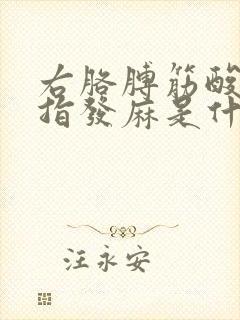 右胳膊筋酸
指發麻是什
汪永安